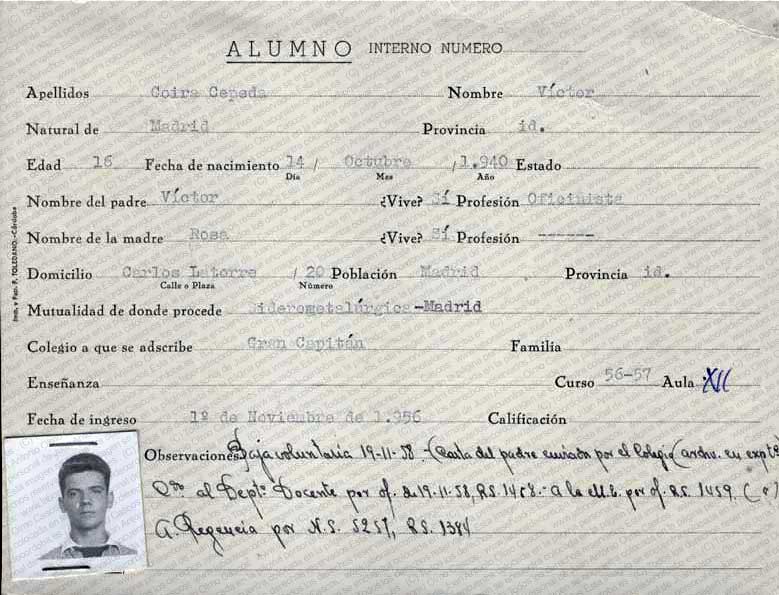 ALUMNO INTERNO NUMERO
Apellidos Coira Cepeda Nombre Víctor
Natural de Madrid Provincia id.
Edad 16 Fecha de nacimiento 14 / Octubre / 1.940 Estado
Día Mes Año
Nombre del padre Víctor ¿Vive? Sí Profesión Oficinista
Nombre de la madre Rosa ¿Vive? Sí Profesión ------
Domicilio Carlos Latorre / 20 Población Madrid Provincia id.
Calle o Plaza Número
Mutualidad de donde procede Siderometalúrgica-Madrid
Colegio a que se adscribe Gran Capitán Familia
Enseñanza Curso 56-57 Aula XII
Fecha de ingreso 1º de Noviembre de 1.956 Calificación
Observaciones Baja voluntaria 19-11-58.-(Carta del padre enviada por el Colegio (archv. en expte
al Deptº Docente por of. de 19-11-58, RS. 1458.- a la M.E. por of. RS. 1459.
A. Regencia por N.S. 5257, RS. 1384
Imp. y Pap. P. TOLEDANO.-Córdoba